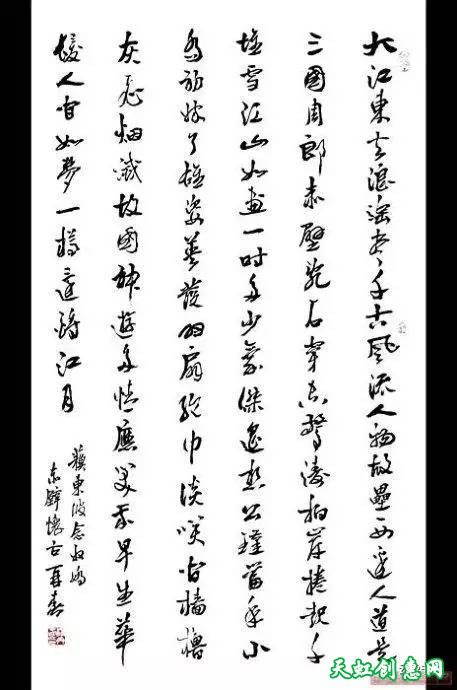 大江東去浪淘盡千古風流人物故壘西邊人道是
三國周郎赤壁亂石穿空驚濤拍岸捲起千
堆雪江山如畫一時多少豪傑遙想公瑾當年小
喬初嫁了雄姿英發羽扇綸巾談笑間檣櫓
灰飛烟滅故國神遊多情應笑我早生華
髮人間如夢一樽還酹江月
蘇東坡念奴嬌
赤壁懷古
天虹创意网